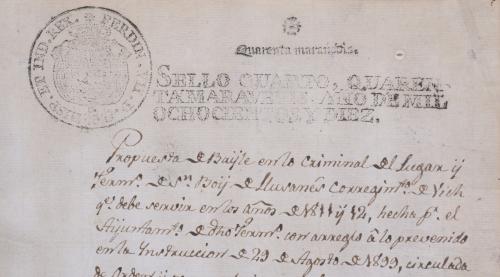 FERDIN. VII. D. G. HISP. ET IND. REX.
Quarenta maravedis.
SELLO QUARTO, QUAREN
TAMARAVEDIS, AÑO DE MIL
OCHOCIENTOS Y DIEZ.
Propuesta de Bayle en lo Criminal del Lugar y
Termo. de Sn. Boy de Llusanés Corregimto. de Vich
qe. debe servir en los años de 1811 y 12, hecha pr. el
Ayuntamto. de dho Termo. con arreglo à lo prevenido
en la Instruccion de 29 de Agosto de 1899, circulada
de Orden